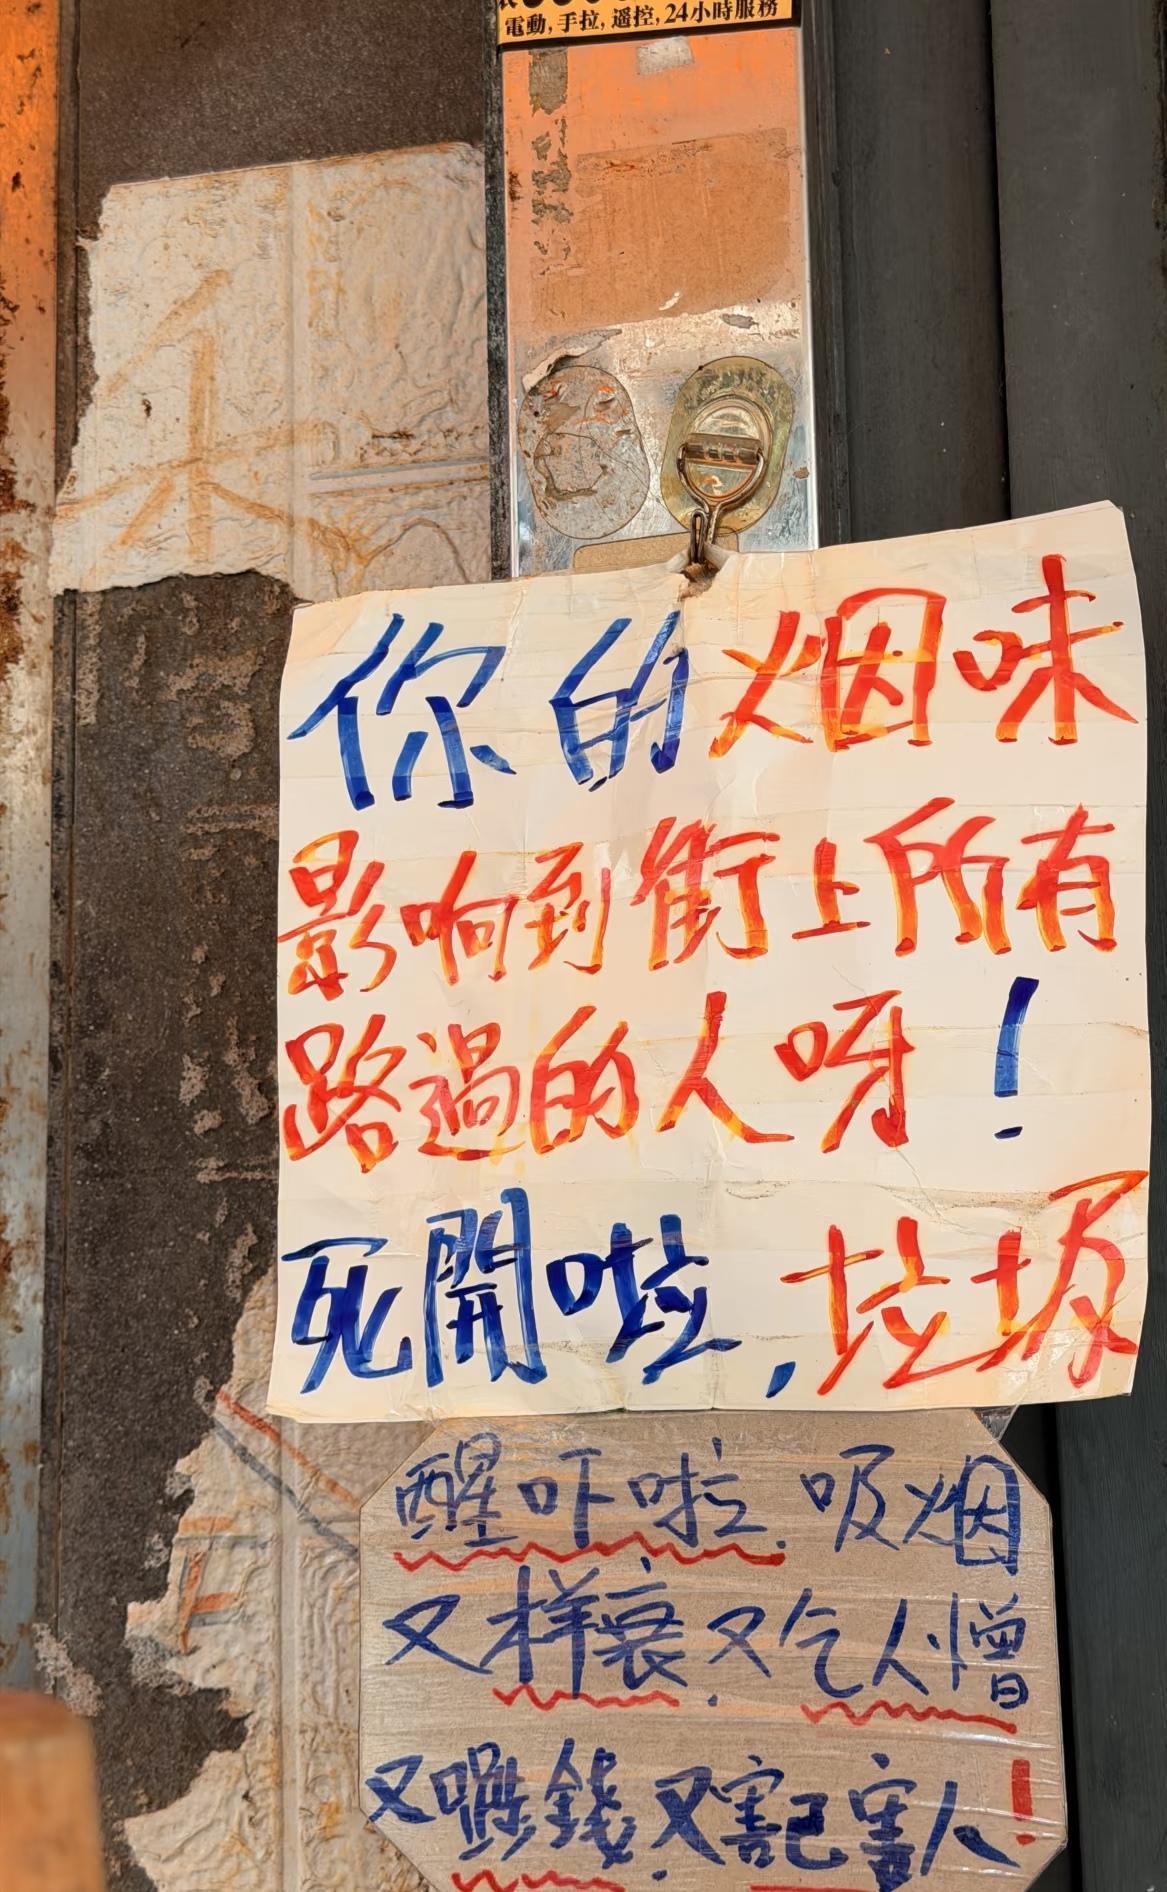 電動,手拉,遥控,24小時服務
你的烟味
影响到街上所有
路過的人呀!
死開啦,垃圾
醒吓啦.吸烟
又样衰,又乞人憎
又嘥錢,又害己害人!